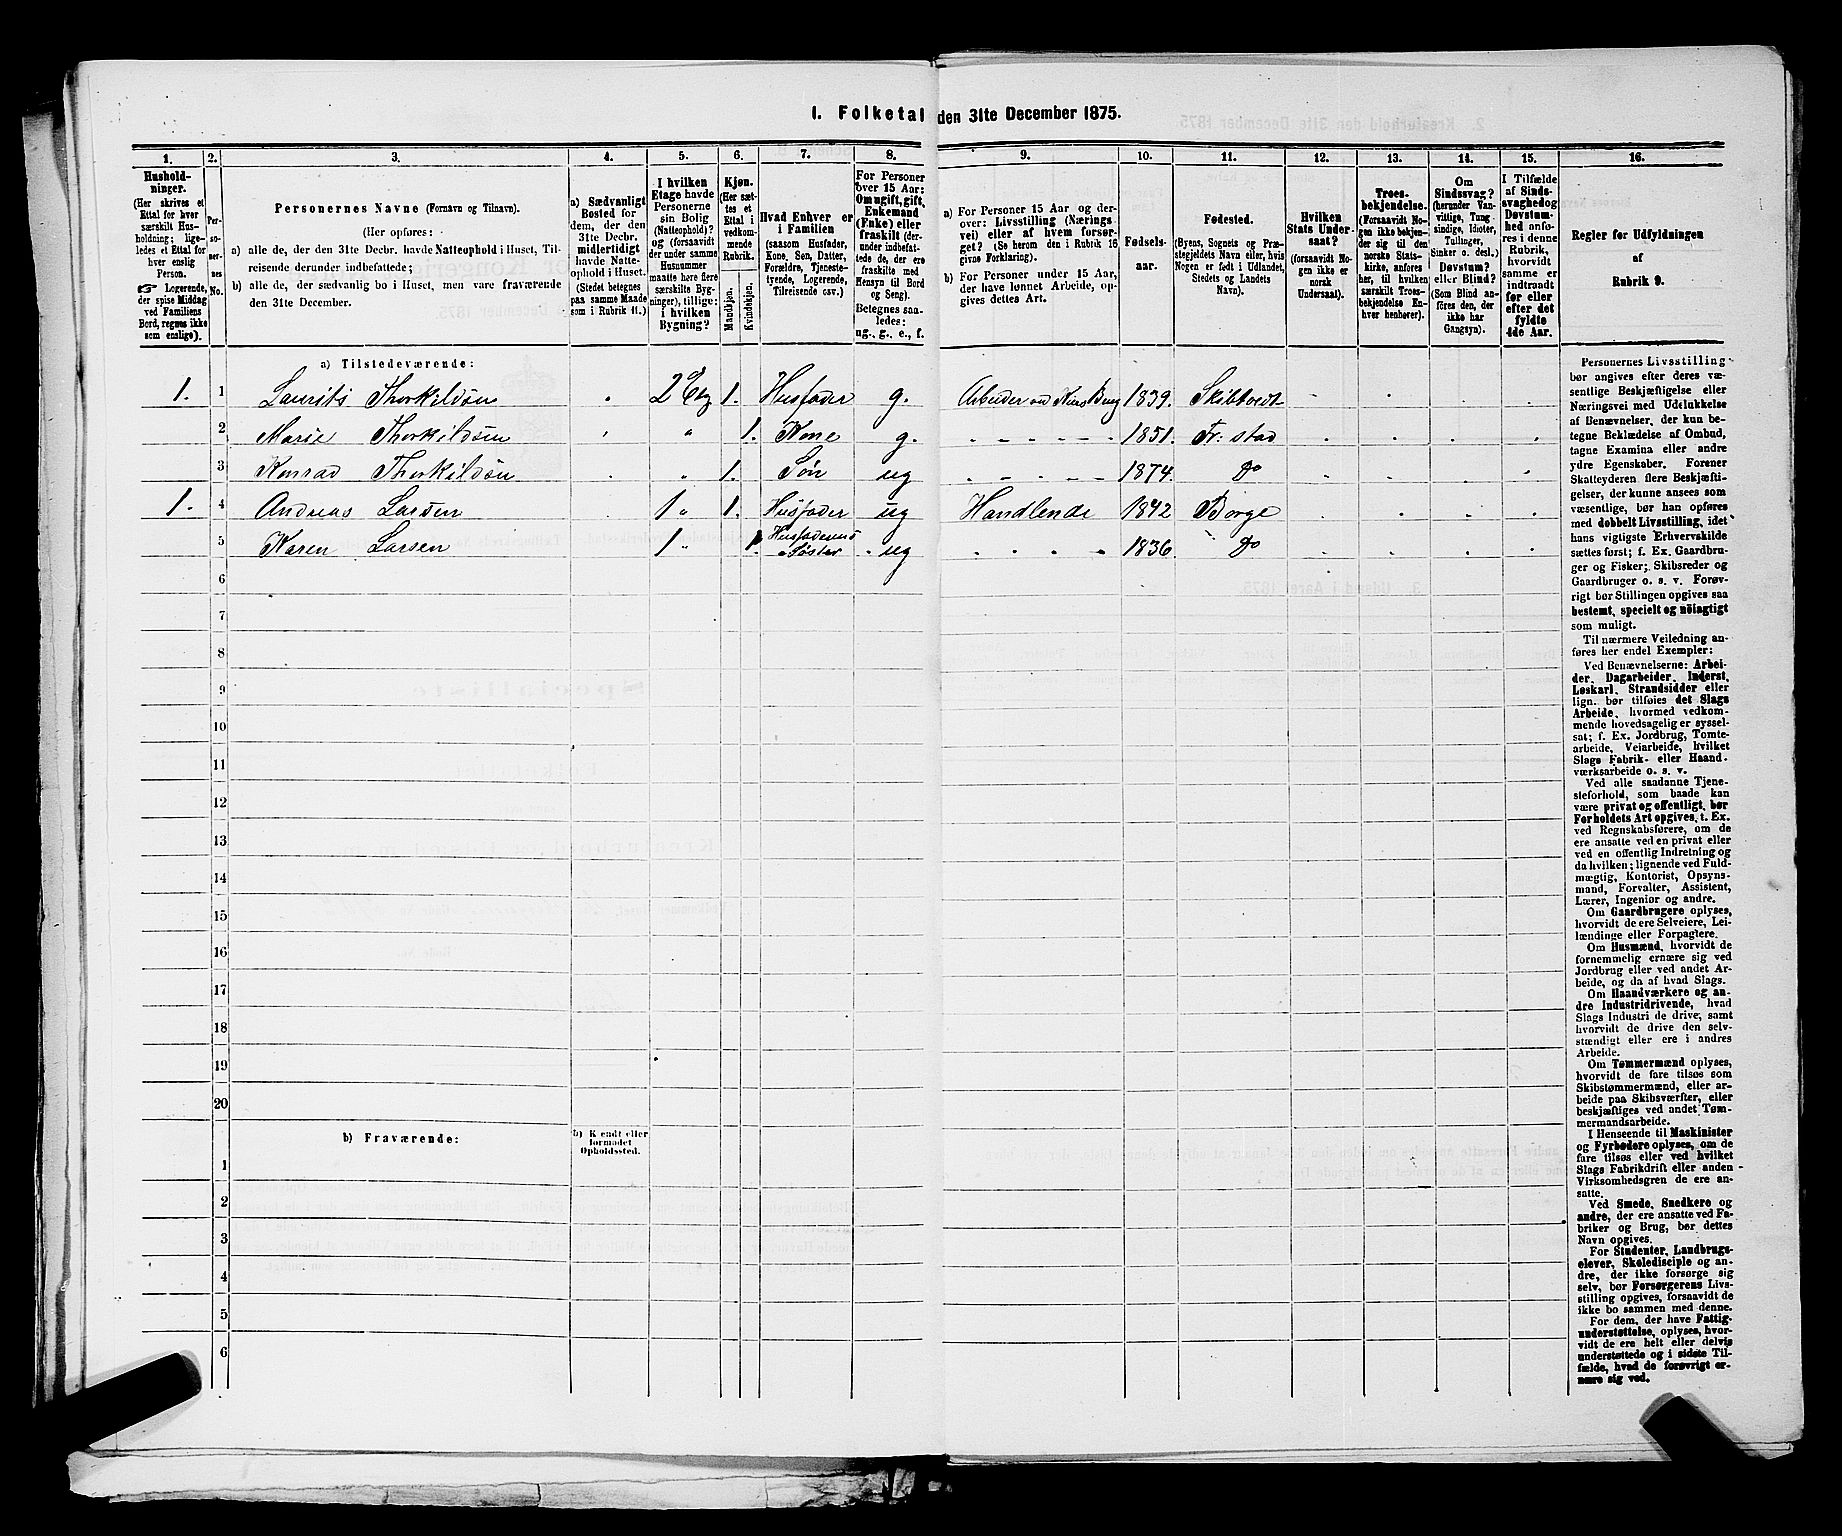 I. Folketal den 31te December 1875.
1. 2. 3. 4. 5. 6. 7. 8. 9. 10. 11. 12. 13. 14. 15. 16.
Hushold-
ninger.
(Her skrives et
Ettal for hver
særskilt Hus-
holdning; lige-
ledes et Ettal for
hver enslig
Person.
☞ Logerende,
der spise Middag
ved Familiens
Bord, regnes ikke
som enslige).
Per-
so-
ner-
nes
No.
Personernes Navne (Fornavn og Tilnavn).
(Her opføres:
a) alle de, der den 31te Decbr. havde Natteophold i Huset, Til-
reisende derunder indbefattede;
b) alle de, der sædvanlig bo i Huset, men vare fraværende
den 31te December.
a) Sædvanligt
Bosted for
dem, der den
31te Decbr.
midlertidigt
havde Natte-
ophold i Huset.
(Stedet betegnes
paa samme Maade
som i Rubrik 11.)
I hvilken
Etage havde
Personerne
sin Bolig
(Natteophold)?
og (forsaavidt
der under samme
Husnummer
maatte høre flere
særskilte Byg-
ninger), tillige:
i hvilken
Bygning?
Kjøn.
(Her sæt-
tes et
Ettal i
vedkom-
mende
Rubrik.
Mandkjøn.
Kvindekjøn.
Hvad Enhver er
i Familien
(saasom Husfader,
Kone, Søn, Datter,
Forældre, Tjeneste-
tyende, Logerende,
Tilreisende osv.)
For Personer
over 15 Aar:
Om ugift, gift,
Enkemand
(Enke) eller
fraskilt (der-
under indbefat-
tede de, der ere
fraskilte med
Hensyn til Bord
og Seng).
Betegnes saa-
ledes:
ug., g., e., f.
a) For Personer 15 Aar og der-
over: Livsstilling (Nærings-
vei) eller af hvem forsør-
get? (Se herom den i Rubrik 16
givne Forklaring).
b) For Personer under 15 Aar,
der have lønnet Arbeide, op-
gives dettes Art.
Fødsels-
aar.
Fødested.
(Byens, Sognets og Præ-
stegjeldets Navn eller, hvis
Nogen er født i Udlandet,
Stedets og Landets
Navn).
Hvilken
Stats Under-
saat?
(forsaavidt No-
gen ikke er
norsk
Undersaat).
Troes-
bekjendelse.
(Forsaavidt No-
gen ikke bekjen-
der sig til den
norske Stats-
kirke, anføres
her, til hvilken
særskilt Troes-
bekjendelse En-
hver henhører).
Om
Sindssvag?
(herunder Van-
vittige, Tung-
sindige, Idioter,
Tullinger,
Sinker o. desl.)
Døvstum?
eller Blind?
(Som Blind an-
føres den, der
ikke har
Gangsyn).
I Tilfælde
af Sinds-
svaghed og
Døvstum-
hed anfø-
res i denne
Rubrik,
hvorvidt
samme er
indtraadt
før eller
efter det
fyldte
4de Aar.
Regler for Udfyldningen
af
Rubrik 9.
a) Tilstedeværende:
1. 1 Laurits Thorkildsen 2 Etg 1. Husfader g. 1839. Skibtvedt
2 Marie Thorkildsen " 1. Kone g. 1851. Fr: stad
3 Konrad Thorkildsen " 1. Søn ug 1874. Do
1. 4 Andreas Larsen 1 " 1. Husfader ug Handlende 1842 Borge
5 Karen Larsen 1 " 1. Husfaderens Søster ug 1836. Do
6
7
8
9
10
11
12
13
14
15
16
17
18
19
20
b) Fraværende:
b) Kjendt eller
formodet
Opholdssted.
1
2
3
4
5
6
Personernes Livsstilling
bør angives efter deres væ-
sentlige Beskjæftigelse eller
Næringsvei med Udelukkelse
af Benævnelser, der kun be-
tegne Beklædelse af Ombud,
tagne Examina eller andre
ydre Egenskaber. Forener
Skatteyderen flere Beskjæfti-
gelser, der kunne ansees som
væsentlige, bør han opføres
med dobbelt Livsstilling, idet
hans vigtigste Erhvervskilde
sættes først; f. Ex. Gaardbru-
ger og Fisker; Skibsreder og
Gaardbruger o. s. v. Forøv-
rigt bør Stillingen opgives saa
bestemt, specielt og nöiagtigt
som muligt.
Til nærmere Veiledning an-
føres her endel Exempler:
Ved Benævnelserne: Arbei-
der, Dagarbeider, Inderst,
Løskarl, Strandsidder eller
lign. bør tilføies det Slags
Arbeide, hvormed vedkom-
mende hovedsagelig er syssel-
sat; f. Ex. Jordbrug, Tomte-
arbeide, Veiarbeide, hvilket
Slags Fabrik- eller Haand-
værksarbeide o. s. v.
Ved alle saadanne Tjene-
steforhold, som baade kan
være privat og offentligt, bør
Forholdets Art opgives, t. Ex.
ved Regnskabsførere, om de
ere ansatte ved en privat eller
ved en offentlig Indretning og
da hvilken; lignende ved Fuld-
mægtig, Kontorist, Opsyns-
mand, Forvalter, Assistent,
Lærer, Ingeniør og andre.
Om Gaardbrugere oplyses,
hvorvidt de ere Selveiere, Lei-
lændinge eller Forpagtere.
Om Husmænd, hvorvidt de
fornemmelig ernære sig ved
Jordbrug eller ved andet Ar-
beide, og da af hvad Slags.
Om Haandværkere og an-
dre Industridrivende, hvad
Slags Industri de drive, samt
hvorvidt de drive den selv-
stændigt eller ere i andres
Arbeide.
Om Tømmermænd oplyses,
hvorvidt de fare tilsøs som
Skibstømmermænd, eller ar-
beide paa Skibsværfter, eller
beskjæftiges ved andet Tøm-
mermandsarbeide.
I Henseende til Maskinister
og Fyrbødere oplyses, om de
fare tilsøs eller ved hvilket
Slags Fabrikdrift eller anden
Virksomhedsgren de ere an-
satte.
Ved Smede, Snedkere og
andre, der ere ansatte ved Fa-
briker og Brug, bør dettes
Navn opgives.
For Studenter, Landbrugs-
elever, Skoledisciple og an-
dre, der ikke forsørge sig
selv, bør Forsørgerens Livs-
stilling opgives, forsaavidt de
ikke bo sammen med denne.
For dem, der have Fattig-
understøttelse, oplyses, hvor-
vidt de ere helt eller delvis
understøttede og i sidste Til-
fælde, hvad de forøvrigt er-
nære sig ved.